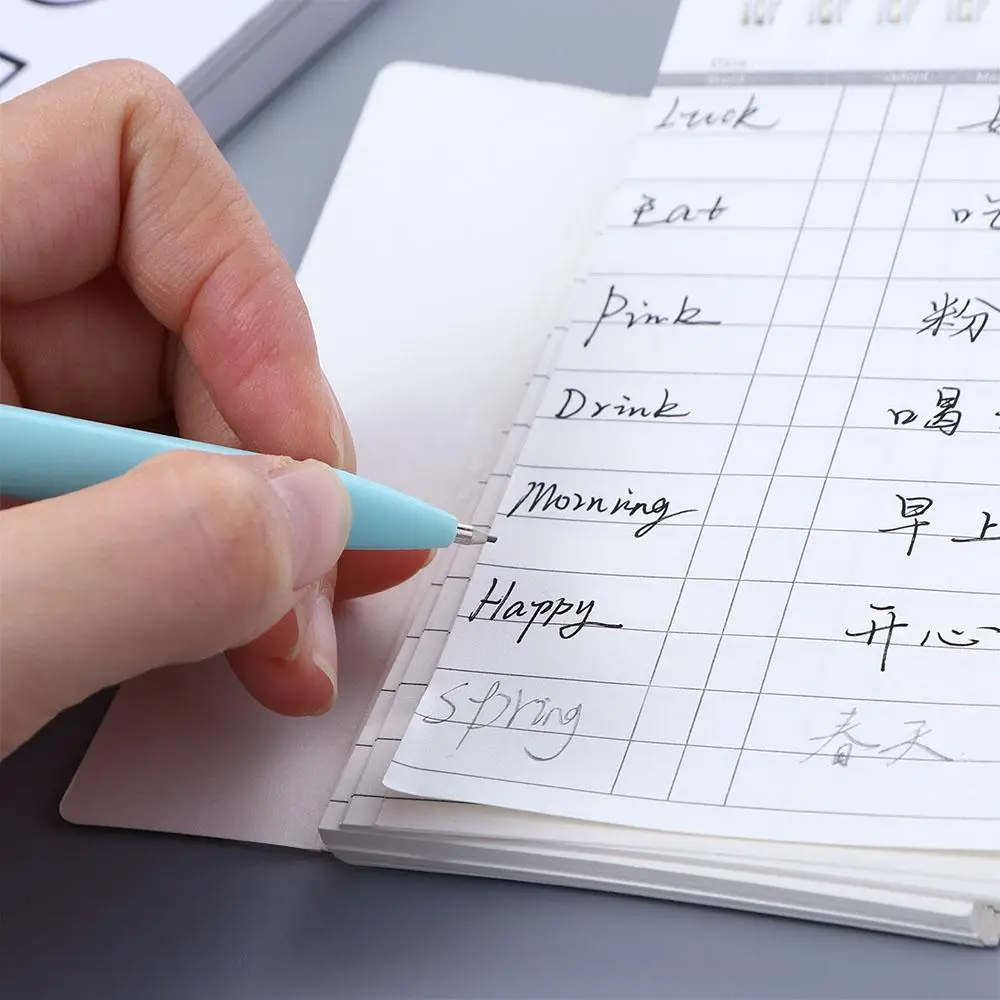 Luck
Eat 吃
Pink 粉
Drink 喝
Morning 早上
Happy 开心
Spring 春天